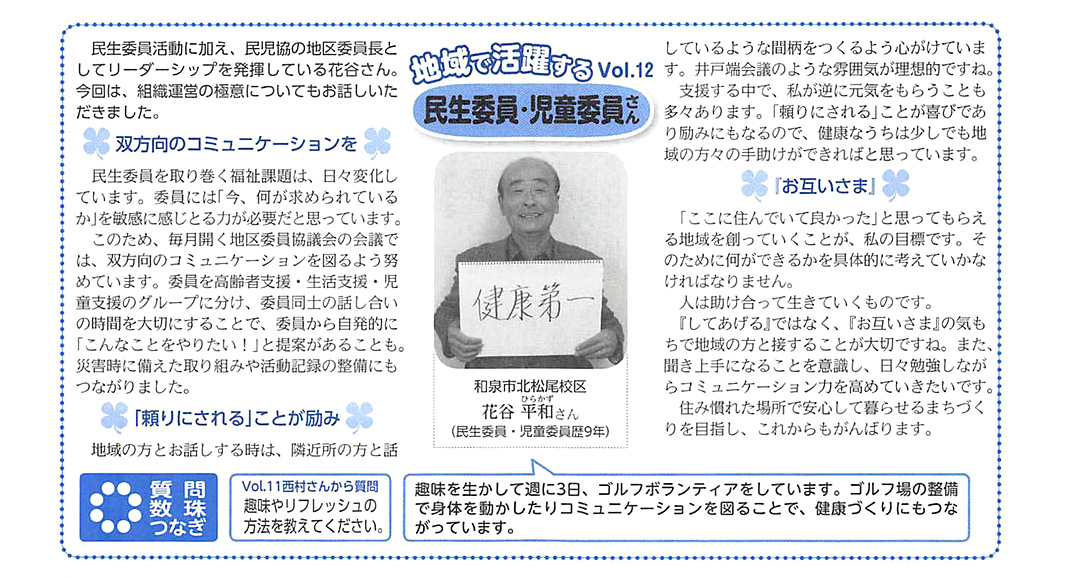 地域で活躍する Vol.12
民生委員・児童委員さん
民生委員活動に加え、民児協の地区委員長と
してリーダーシップを発揮している花谷さん。
今回は、組織運営の極意についてもお話しいた
だきました。
双方向のコミュニケーションを
民生委員を取り巻く福祉課題は、日々変化し
ています。委員には「今、何が求められている
か」を敏感に感じとる力が必要だと思っています。
このため、毎月開く地区委員協議会の会議で
は、双方向のコミュニケーションを図るよう努
めています。委員を高齢者支援・生活支援・児
童支援のグループに分け、委員同士の話し合い
の時間を大切にすることで、委員から自発的に
「こんなことをやりたい！」と提案があることも。
災害時に備えた取り組みや活動記録の整備にも
つながりました。
「頼りにされる」ことが励み
地域の方とお話しする時は、隣近所の方と話
しているような間柄をつくるよう心がけていま
す。井戸端会議のような雰囲気が理想的ですね。
支援する中で、私が逆に元気をもらうことも
多々あります。「頼りにされる」ことが喜びであ
り励みにもなるので、健康なうちは少しでも地
域の方々の手助けができればと思っています。
『お互いさま』
「ここに住んでいて良かった」と思ってもらえ
る地域を創っていくことが、私の目標です。そ
のために何ができるかを具体的に考えていかな
ければなりません。
人は助け合って生きていくものです。
『してあげる』ではなく、『お互いさま』の気も
ちで地域の方と接することが大切ですね。また、
聞き上手になることを意識し、日々勉強しなが
らコミュニケーション力を高めていきたいです。
住み慣れた場所で安心して暮らせるまちづく
りを目指し、これからもがんばります。
健康第一
和泉市北松尾校区
ひらかず
花谷 平和さん
（民生委員・児童委員歴9年）
質問
数珠
つなぎ
Vol.11西村さんから質問
趣味やリフレッシュの
方法を教えてください。
趣味を生かして週に3日、ゴルフボランティアをしています。ゴルフ場の整備
で身体を動かしたりコミュニケーションを図ることで、健康づくりにもつな
がっています。